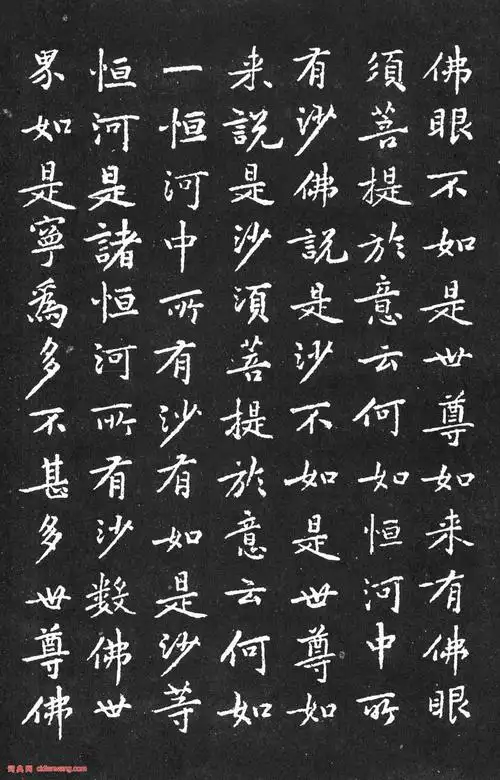 佛眼不如是世尊如来有佛眼
須菩提於意云何如恒河中所
有沙佛説是沙不如是世尊如
来説是沙須菩提於意云何如
一恒河中所有沙有如是沙等
恒河是諸恒河所有沙数佛世
界如是寧爲多不甚多世尊佛
词典网 cidianwang.com